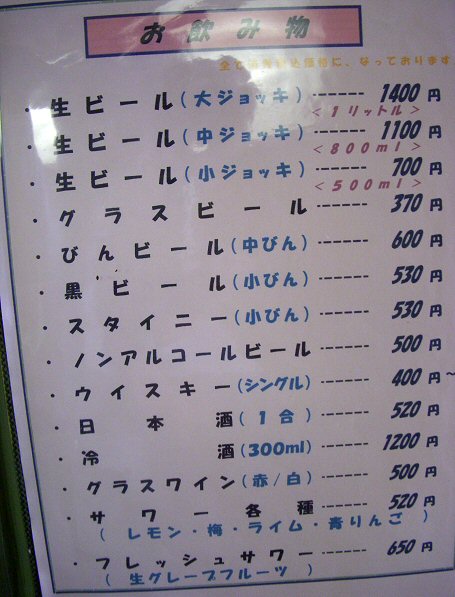 お飲み物
全て消費税込価格に、なっております
・生ビール(大ジョッキ)------ 1400円
<1リットル>
・生ビール(中ジョッキ)------ 1100円
<800ml>
・生ビール(小ジョッキ)------ 700円
<500ml>
・グラスビール ------ 370円
・びんビール(中びん)------ 600円
・黒ビール(小びん)------ 530円
・スタイニー(小びん)------ 530円
・ノンアルコールビール ------ 500円
・ウイスキー(シングル)------ 400円~
・日本酒(1合)------ 520円
・冷酒(300ml)------ 1200円
・グラスワイン(赤/白)------ 500円
・サワー各種 ------ 520円
(レモン・梅・ライム・青りんご)
・フレッシュサワー ------ 650円
(生グレープフルーツ)